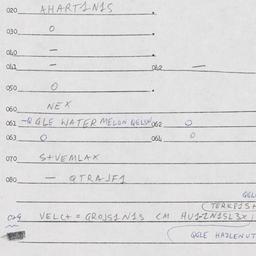 020 AHART1N1S
030 O
040 —
041 — 042 —
050 O
060 NEX
061 -QGLE WATERMELON 062 O
063 O 064 O
070 S+VEMLAX
080 — QTRAJF1
QGL
TERKP1S+
049 VELC+ = GROJS1N1S CM HU1ZN1SL3X1
QGLE HAZLENUT